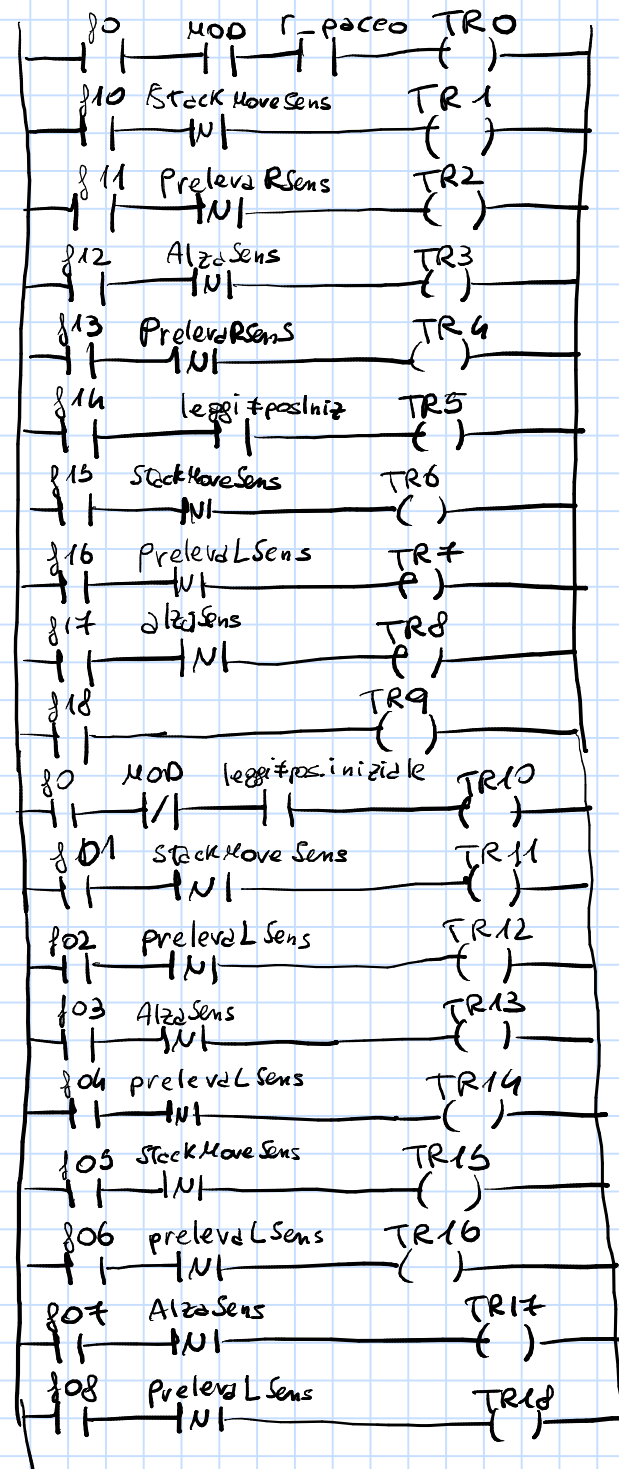 f0 MOD r_pacco TR0
f10 StackMoveSens N TR1
f11 PrelevaRSens N TR2
f12 AlzaSens N TR3
f13 PrelevaRSens N TR4
f14 leggi≠posIniz TR5
f15 StackMoveSens N TR6
f16 PrelevaLSens N TR7
f17 alzaSens N TR8
f18 TR9
f0 MOD / leggi≠pos.iniziale TR10
f01 StackMove Sens N TR11
f02 prelevaL Sens N TR12
f03 AlzaSens N TR13
f04 prelevaL Sens N TR14
f05 StackMoveSens N TR15
f06 prelevaL Sens N TR16
f07 AlzaSens N TR17
f08 prelevaL Sens N TR18